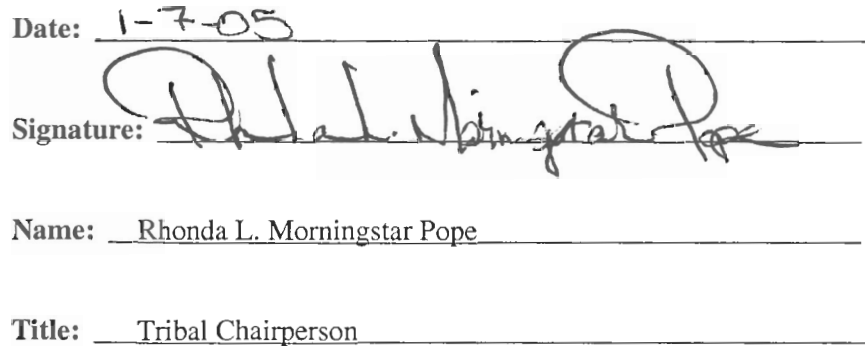 Date: 1-7-05
Signature: Rhonda L. Morningstar Pope
Name: Rhonda L. Morningstar Pope
Title: Tribal Chairperson